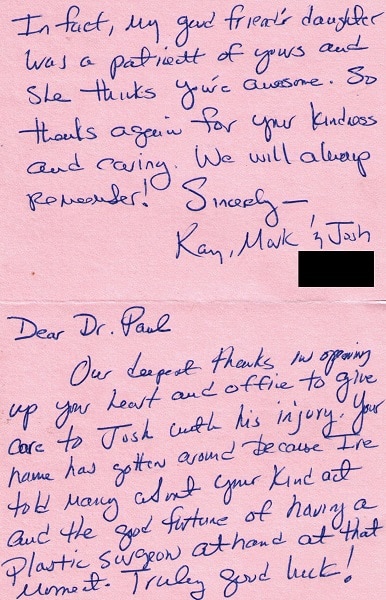 In fact, my good friend's daughter
was a patient of yours and
she thinks you're awesome. So
thanks again for your kindness
and caring. We will always
remember! Sincerely—
Kay, Mark & Josh
Dear Dr. Paul
Our deepest thanks in opening
up your heart and office to give
care to Josh with his injury. Your
name has gotten around because I've
told many about your kind act
and the good fortune of having a
Plastic Surgeon at hand at that
moment. Truly good luck!